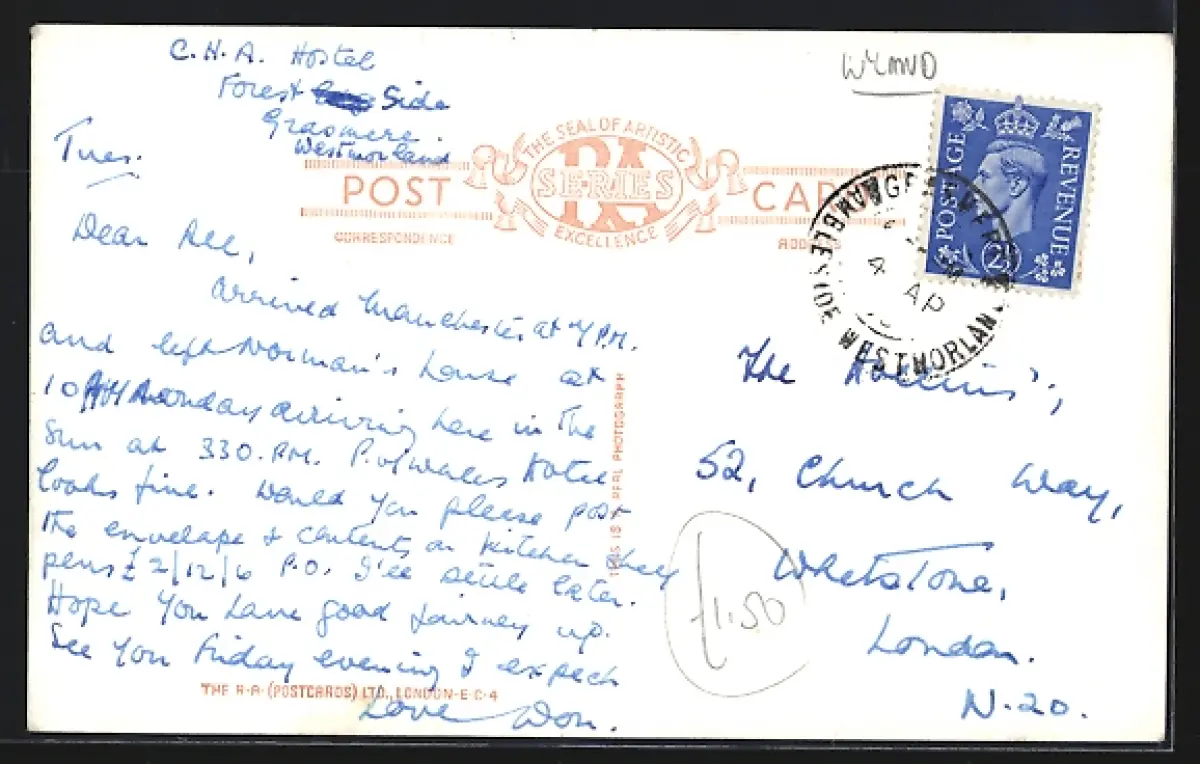 C.H.A. Hostel
Forest Side
Grasmere.
Westmorland
Tues.
WLMND
THE SEAL OF ARTISTIC
RA
SERIES
EXCELLENCE
POST CARD
CORRESPONDENCE
ADDRESS
POSTAGE REVENUE
2½
AMBLESIDE WESTMORLAND
4 AP
Dear All,
arrived Manchester at 7 P.M.
and left Norman's house at
10 AM Monday arriving here in the
Sun at 330. P.M. P. of Wales Hotel
looks fine. Would you please post
the envelope & contents on kitchen shelf
pens £2/12/6 P.O. I'll settle later.
Hope you have good journey up.
See you Friday evening I expect
Love Don.
THIS IS A REAL PHOTOGRAPH
The Hollins',
52, Church Way,
Whetstone,
London.
N.20.
£1.50
THE R.A. (POSTCARDS) LTD., LONDON-E.C.4